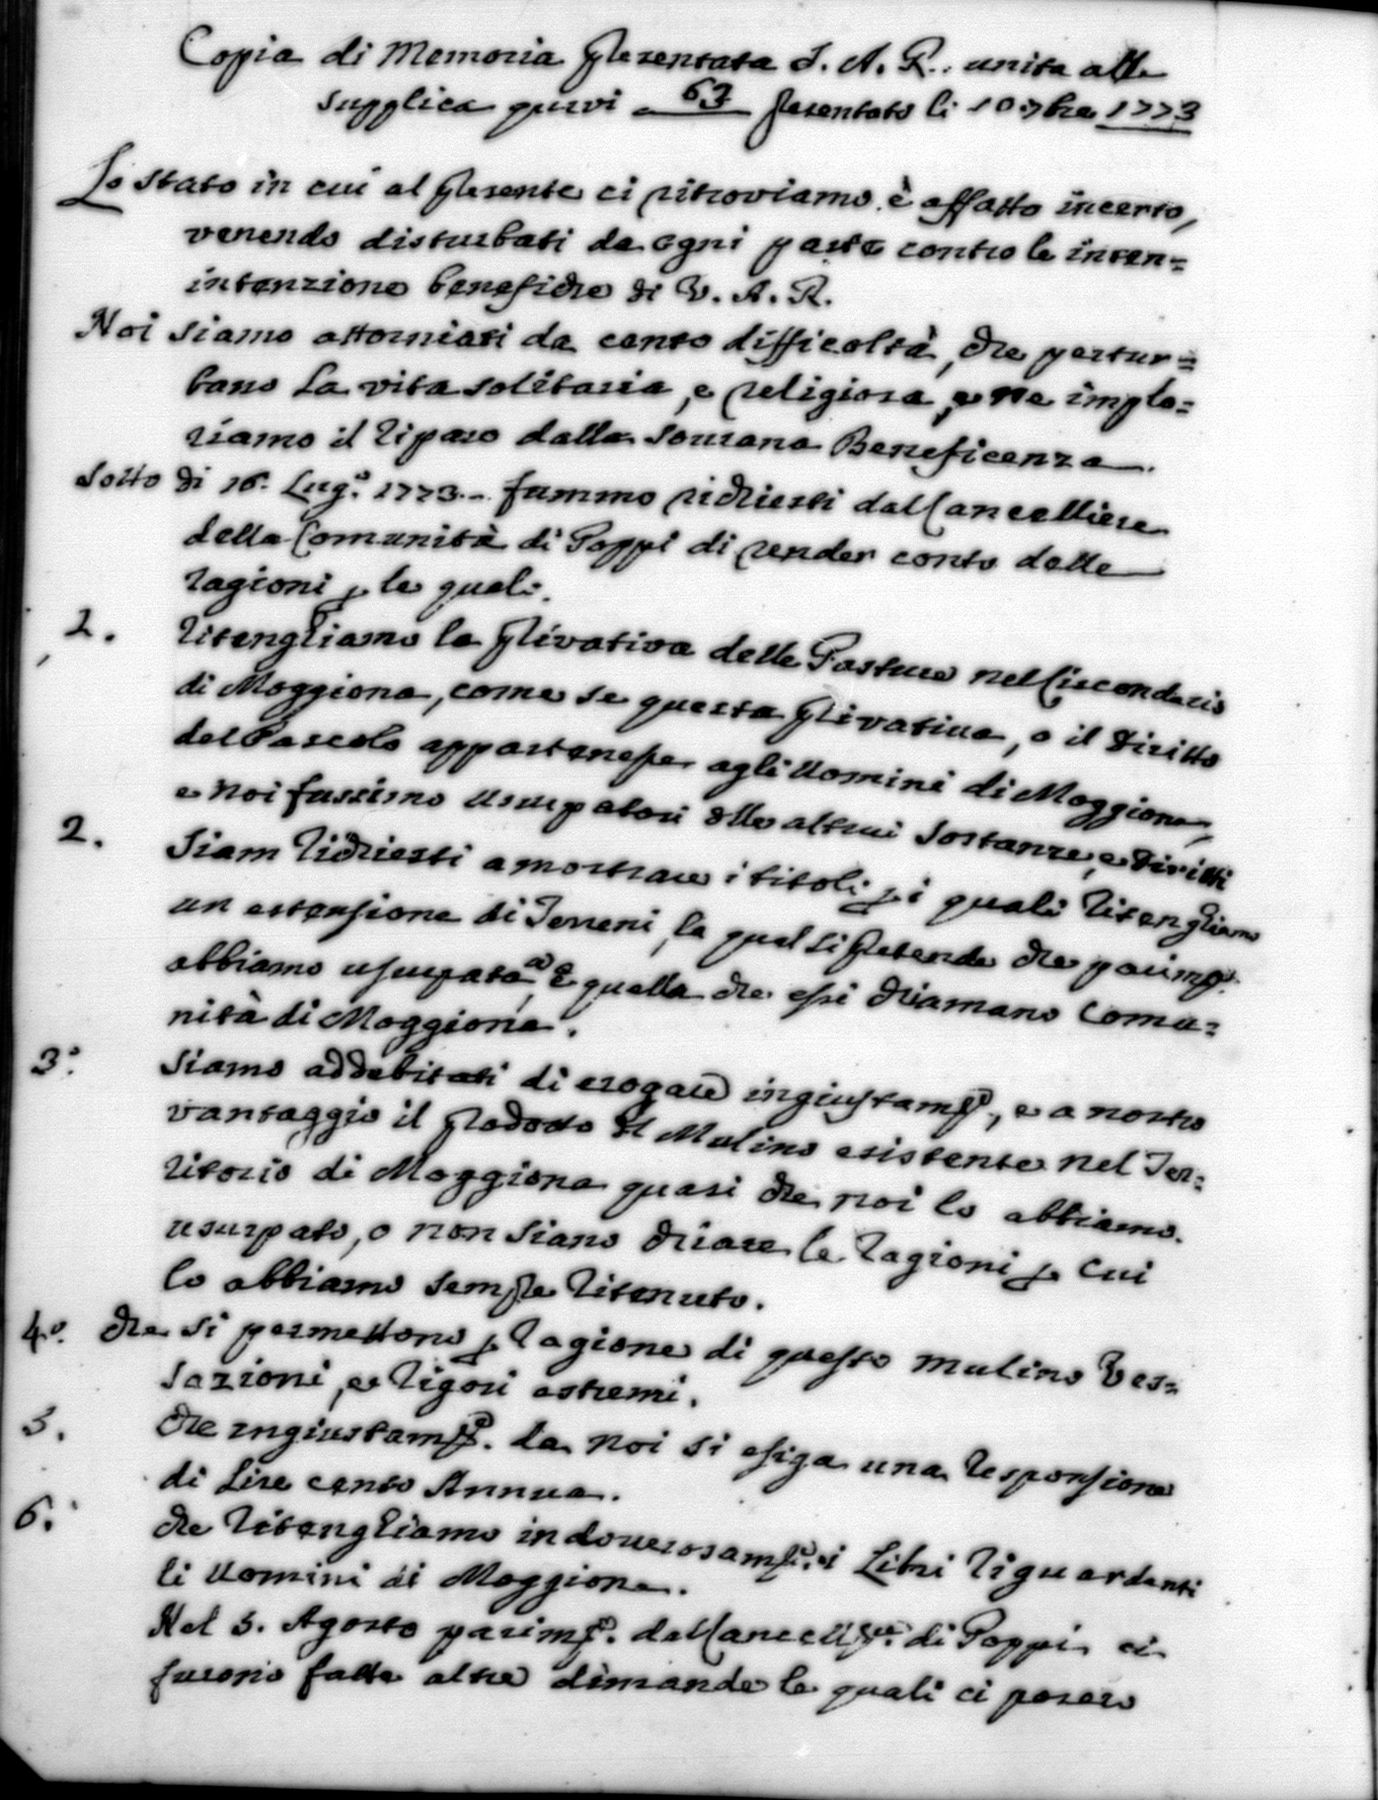 Copia di Memoria presentata S. A. R. unita alla
supplica quivi 63 presentata li 10 7bre 1773
Lo stato in cui al presente ci ritroviamo è affatto incerto,
venendo disturbati da ogni parte contro le inten=
intenzione benefiche di V. A. R.
Noi siamo attorniati da cento difficoltà, che pertur=
bano la vita solitaria, e religiosa, e ne implo=
riamo il riparo dalla Sourana Beneficenza.
Sotto di 16. Lug.o 1773. fummo richiesti dal Cancelliere
della Comunità di Poppi di render conto delle
ragioni p. le quali.
1. Ritenghiamo la privativa delle Pasture nel Circondario
di Moggiona, come se questa privativa, o il diritto
del Pascolo appartenesse agli Uomini di Moggiona,
e noi fussimo usurpatori delle altrui Sostanze, e diritti
2. Siam richiesti a mostrare i titoli p. i quali ritenghiamo
un estensione di Terreni, la qual si pretende che parimte.
abbiamo usurpata a quella che essi chiamano Comu=
nità di Moggiona.
3.o Siamo addebitati di erogare ingiustamte., e a nostro
vantaggio il prodotto del Mulino esistente nel Ter=
ritorio di Moggiona quasi che noi lo abbiamo
usurpato, o non siano chiare le ragioni p. cui
lo abbiamo sempre ritenuto.
4.o che si permettono p. ragione di questo mulino Ves=
sazioni, e rigori estremi.
5. che ingiustamte. da noi si esiga una responsione
di Lire cento Annua.
6. che ritenghiamo indouerosamte. i Libri riguardanti
li Uomini di Moggiona.
Nel 3. Agosto parimte. dal Cancellre. di Poppi ci
furono fatte altre dimande le quali ci posero